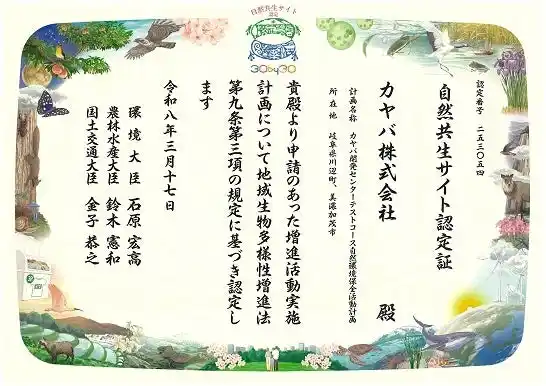 自然共生サイト
認定
30by30
認定番号　二五三〇五四
自然共生サイト認定証
カヤバ株式会社　殿
計画名称　カヤバ開発センターテストコース自然環境保全活動計画
所在地　岐阜県川辺町、美濃加茂市
貴殿より申請のあった増進活動実施
計画について地域生物多様性増進法
第九条第三項の規定に基づき認定し
ます
令和八年三月十七日
環境大臣　石原宏高
農林水産大臣　鈴木憲和
国土交通大臣　金子恭之